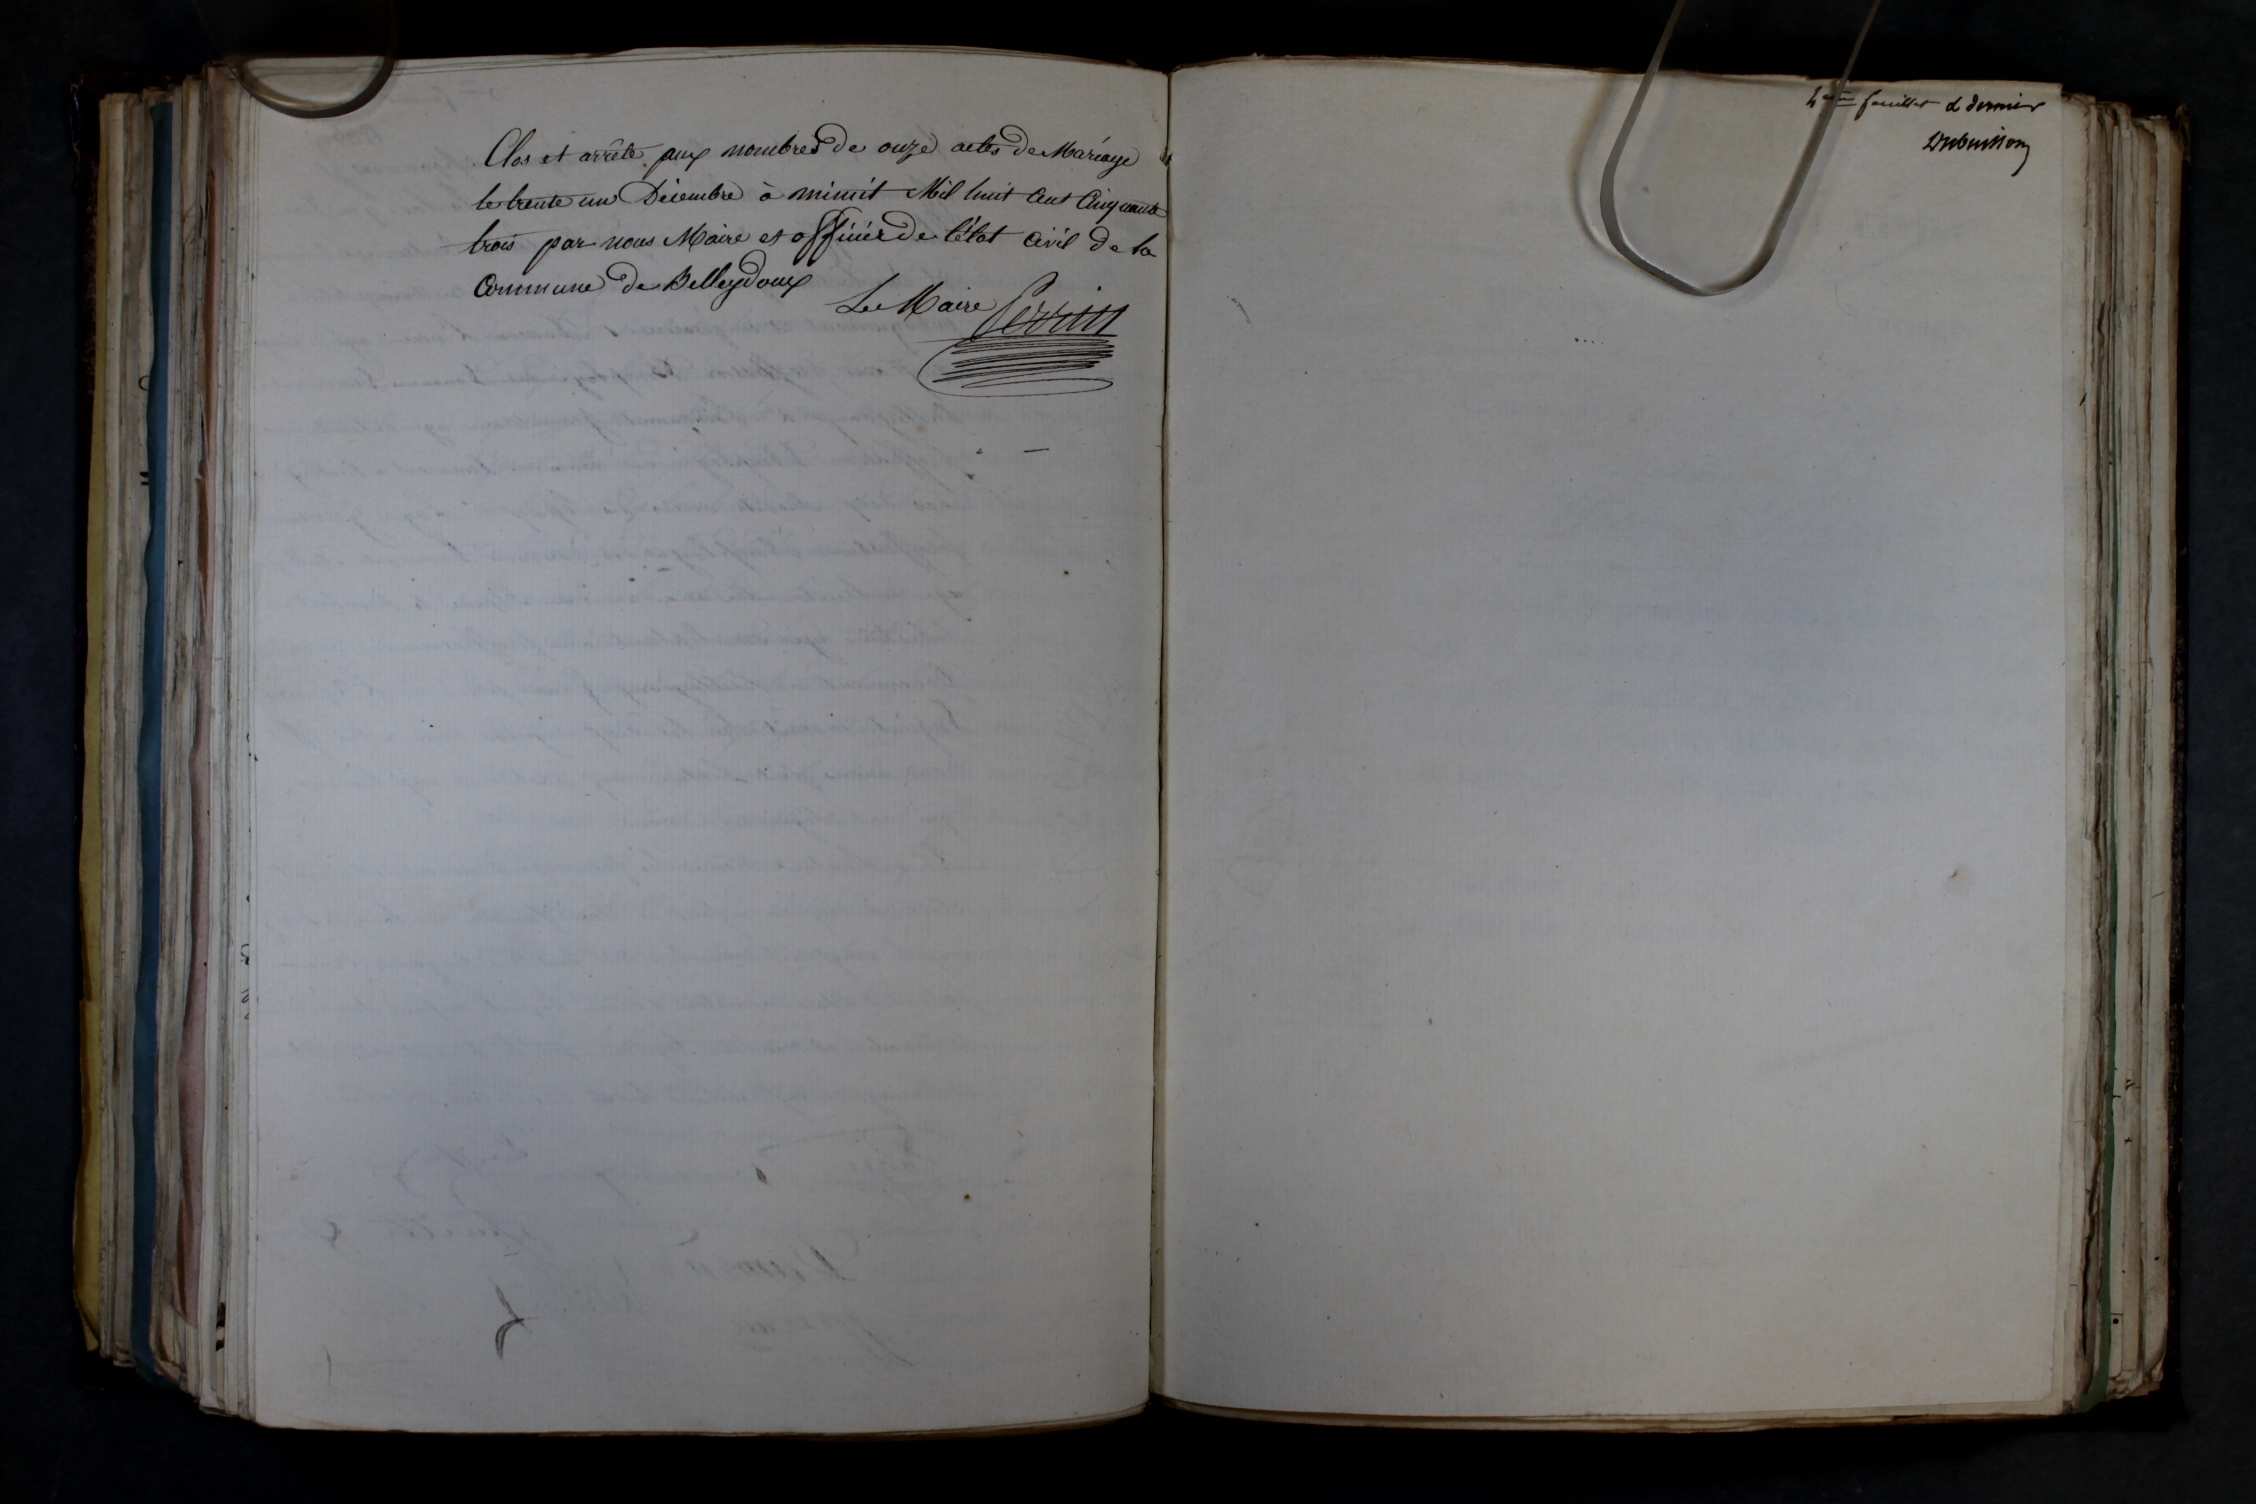 Clos et arrêté aux nombres de onze actes de Mariage
le trente un Décembre à minuit Mil huit Cent Cinquante
trois par nous Maire et officier de l'état civil de la
Commune de Belleydoux
Le Maire Perrin
4eme feuillet & dernier
Dubuisson